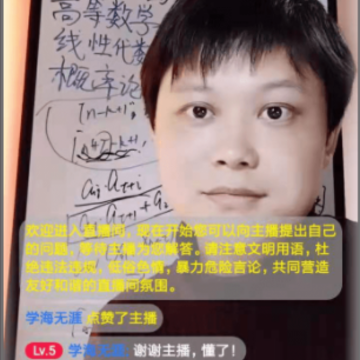 高等数学
线性代数
概率论
欢迎进入直播间,现在开始您可以向主播提出自己
的问题,等待主播为您解答。请注意文明用语,杜
绝违法违规、低俗色情,暴力危险言论,共同营造
友好和谐的直播间氛围。
学海无涯 点赞了主播
Lv.5 学海无涯 谢谢主播,懂了!